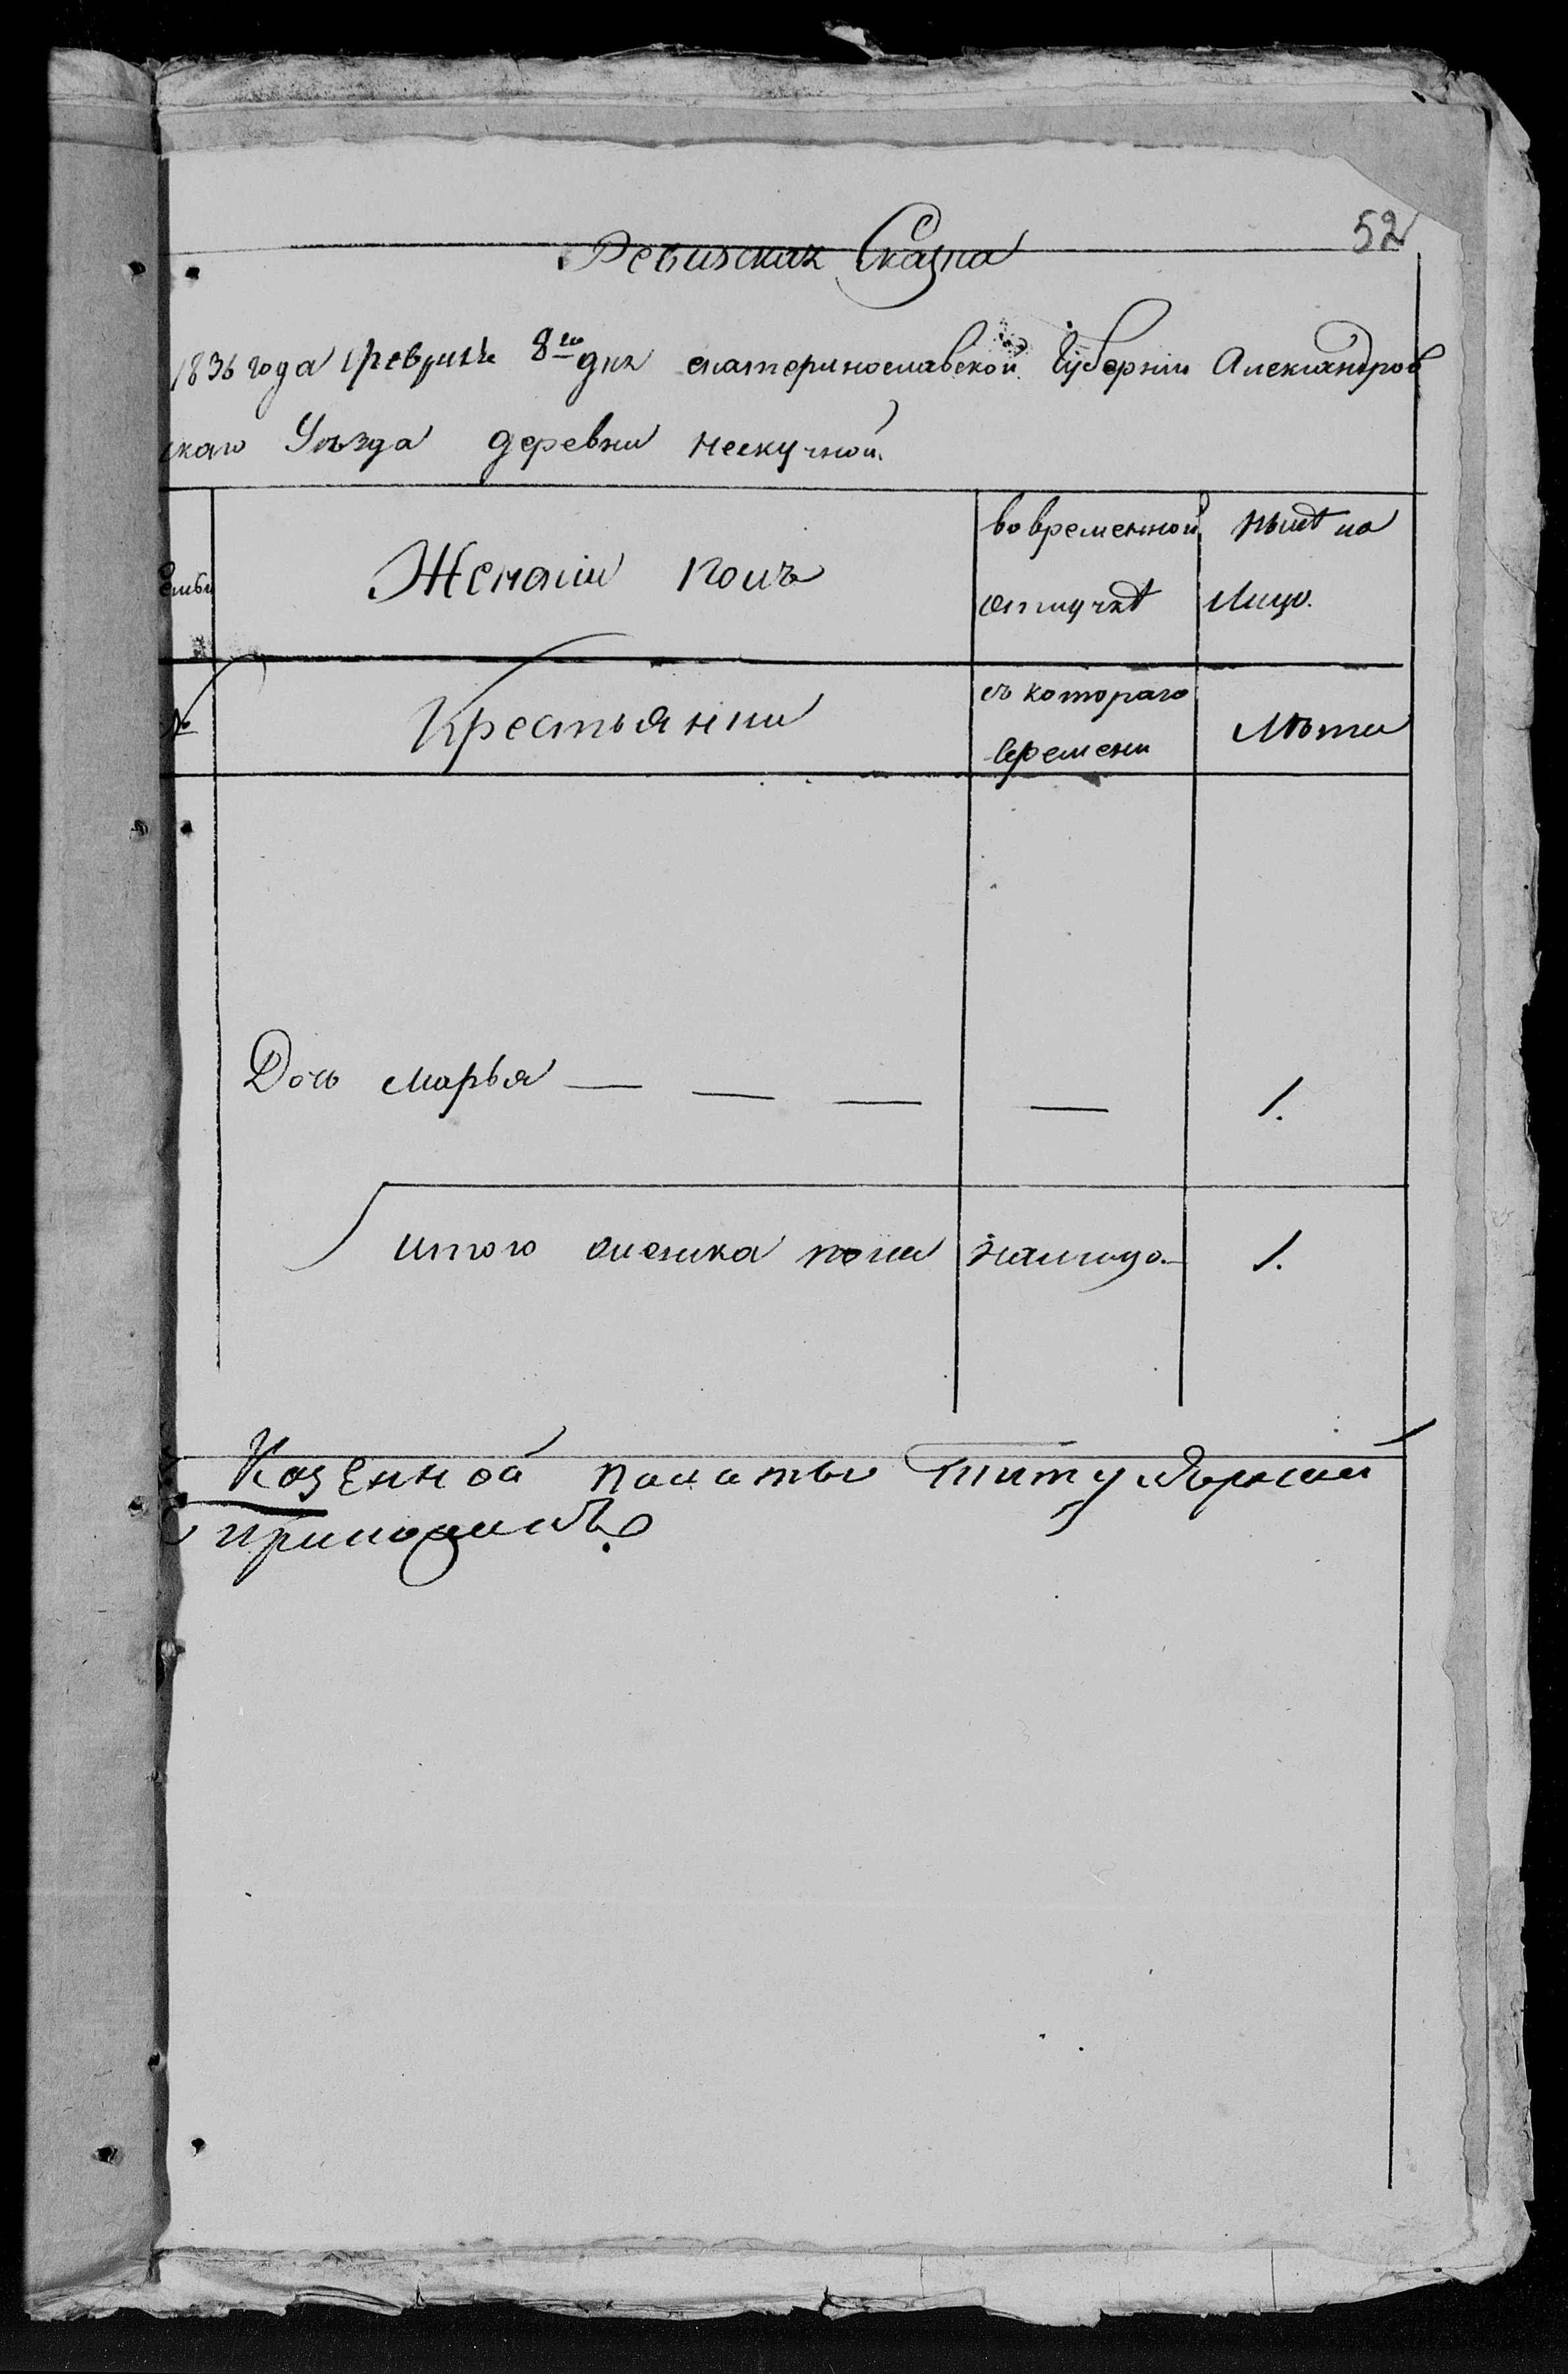 52
Ревизская Сказка
1836 года февраля 8го дня екатеринославской Губернии Александров
скаго Уѣзда деревни нескучной
Женской полъ
во временной
отлучкѣ
нынѣ на
лицо.
№
Крестьянки
съ котораго
времени
Лѣты
Дочь Марья — — — — 1.
итого женска пола налицо. 1.
Казенной палаты титулярной
приложилъ